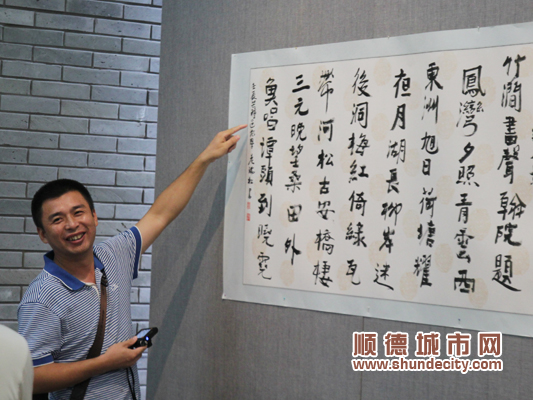 竹澗書聲翰院題
鳳灣夕照青雲西
東洲旭日荷塘耀
夜月湖長柳岸迷
後洞梅紅倚綠瓦
帶河松古安橋棲
三元晚望桑田外
魚唱潭頭到曉霓
顺德城市网
www.shundecity.com